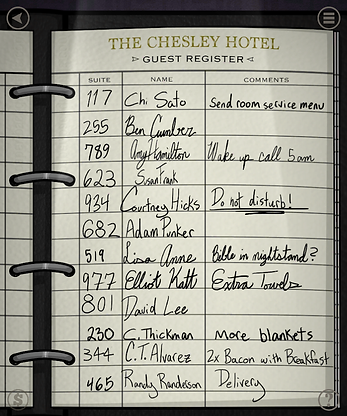 THE CHESLEY HOTEL
GUEST REGISTER
SUITE NAME COMMENTS
117 Chi Sato Send room service menu
255 Ben Cumber
789 Amy Hamilton Wake up call 5am
623 Susan Frank
934 Courtney Hicks Do not disturb!
682 Adam Punker
519 Lisa Anne Bible in nightstand?
977 Elliot Katt Extra Towels
801 David Lee
230 C. Thickman More blankets
344 C.T. Alvarez 2x Bacon with Breakfast
465 Randy Randelson Delivery
$ ?